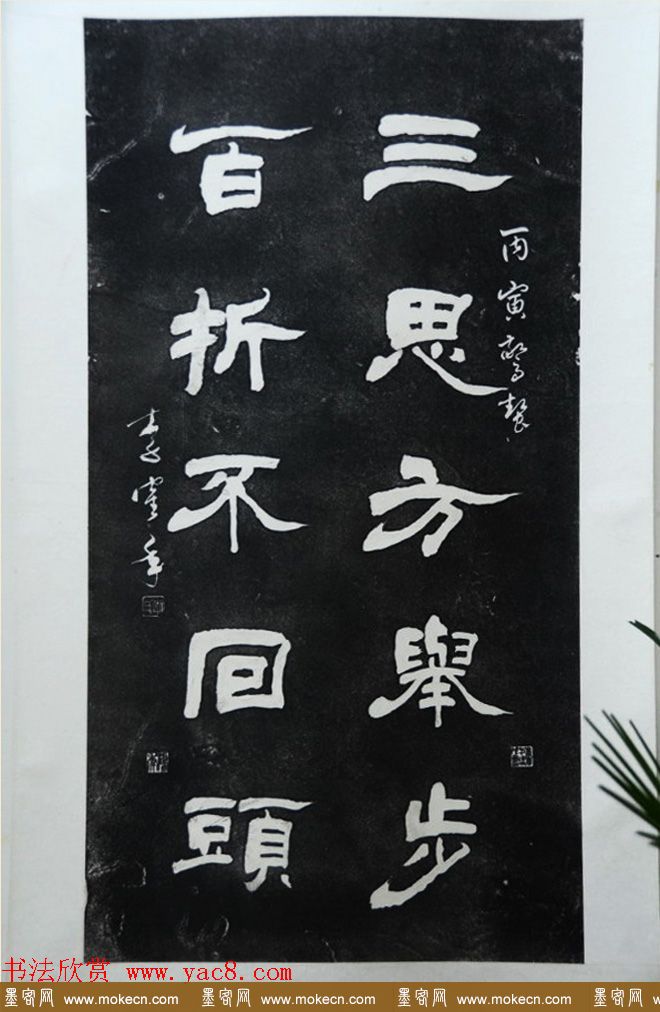 三思方舉步
百折不回頭
丙寅
年
书法欣赏 www.yac8.com
墨客网 www.mokecn.com 墨客网 www.mokecn.com 墨客网 www.mokecn.com